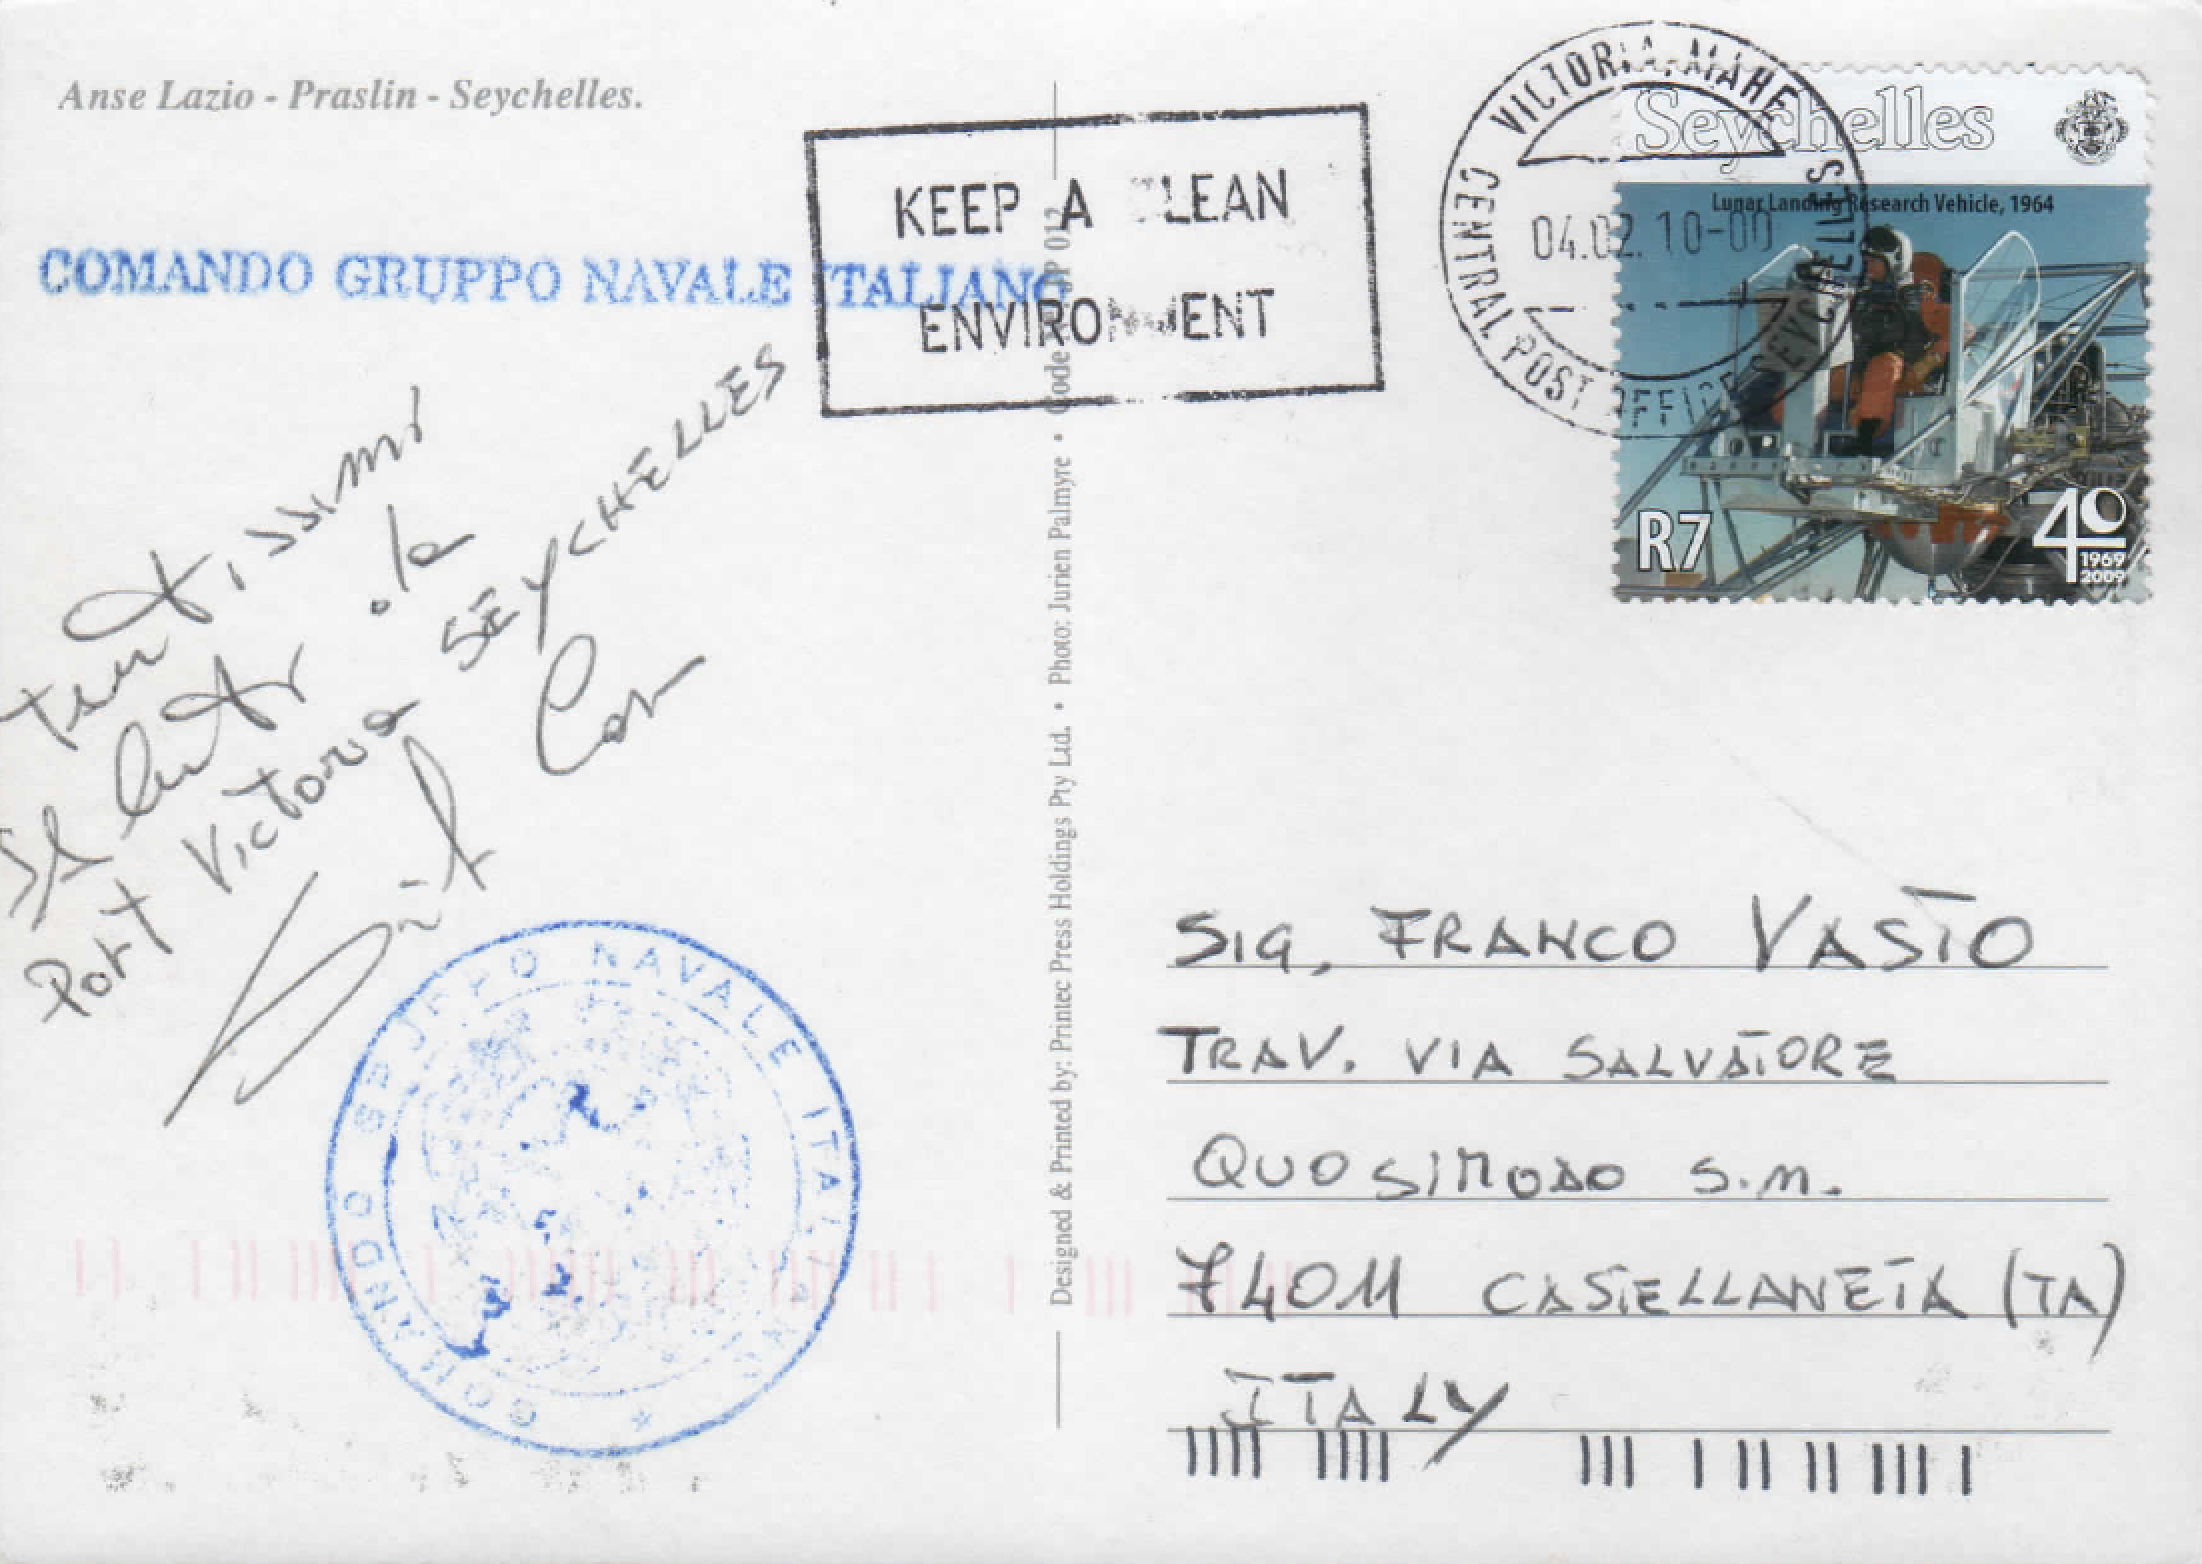 Anse Lazio - Praslin - Seychelles.
COMANDO GRUPPO NAVALE ITALIANO
KEEP A CLEAN
ENVIRONMENT
VICTORIA, MAHE
CENTRAL POST OFFICE SEYCHELLES
04.02.10-00
Seychelles
Lunar Landing Research Vehicle, 1964
R7
40
1969
2009
tantissimi
saluti da
Port Victoria SEYCHELLES
COMANDO GRUPPO NAVALE ITALIANO
Designed & Printed by: Printec Press Holdings Pty Ltd. • Photo: Jurien Palmyre • Code 012
SIG, FRANCO VASTO
TRAV. VIA SALVATORE
QUOSIMODO S.M.
74011 CASTELLANETA (TA)
ITALY